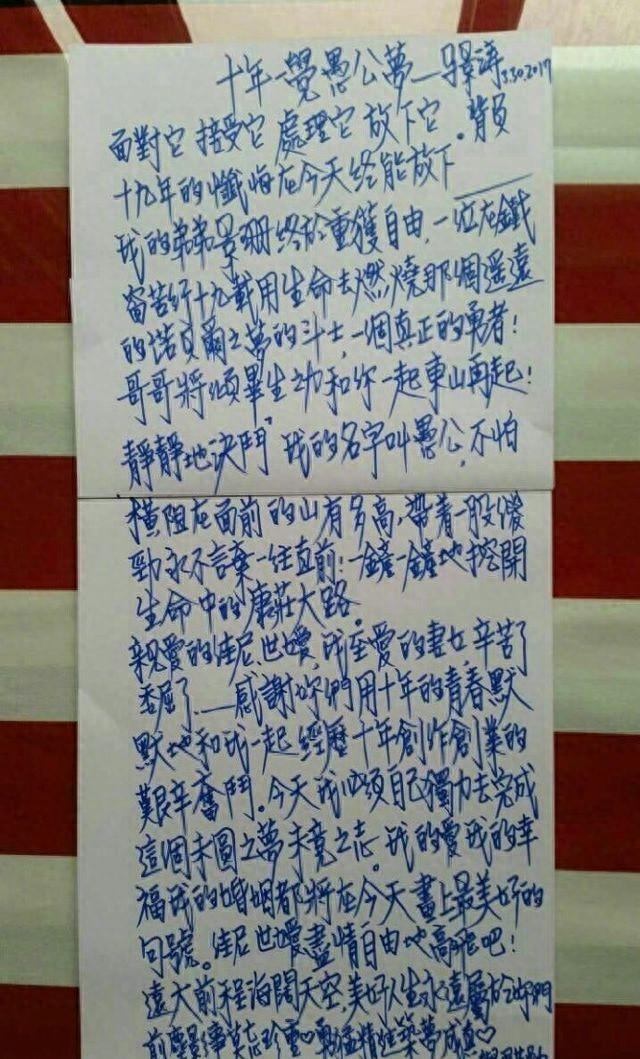 十年一覺愚公夢—马景濤3.30.2017
面對它 接受它 處理它 放下它。背負
十九年的懺悔在今天终能放下——
我的弟弟景珊终於重獲自由，一位在鐵
窗苦行十九載用生命去燃燒那個遥遠
的諾貝爾之夢的斗士，一個真正的勇者！
哥哥將傾畢生之力和你一起東山再起！
靜靜地決鬥，我的名字叫愚公，不怕
橫阻在面前的山有多高，帶着一股傻
勁永不言棄一往直前！一鏟一鏟地挖開
生命中的康莊大路。
親愛的佳尼、世嬡，我至愛的妻女，辛苦了
委屈了——感謝你們用十年的青春默
默地和我一起 經歷十年創作創業的
艱辛奮鬥。今天我必須自己獨力去完成
這個未圓之夢未竟之志。我的愛我的幸
福我的婚姻都將在今天畫上最美好的
句號。佳尼世嬡盡情自由地高飛吧！
遠大前程海闊天空，美好人生永遠屬於你們
前塵景濤莫忘珍重♡勇猛精進築夢成真♡